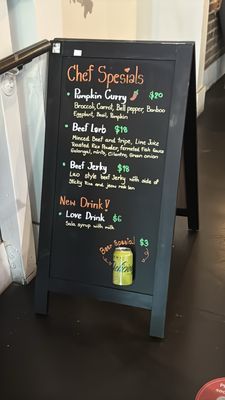 Chef Specials
• Pumpkin Curry $20
Broccoli, Carrot, Bell pepper, Bamboo
Eggplant, Basil, Pumpkin
• Beef Larb $18
Minced Beef and tripe, Lime Juice
Toasted Rice Powder, fermented Fish Sauce
Galangal, mint, Cilantro, Green onion
• Beef Jerky $18
Lao style beef Jerky with side of
Sticky Rice and
New Drink!
• Love Drink $6
Sala syrup with milk
Beer Special $3